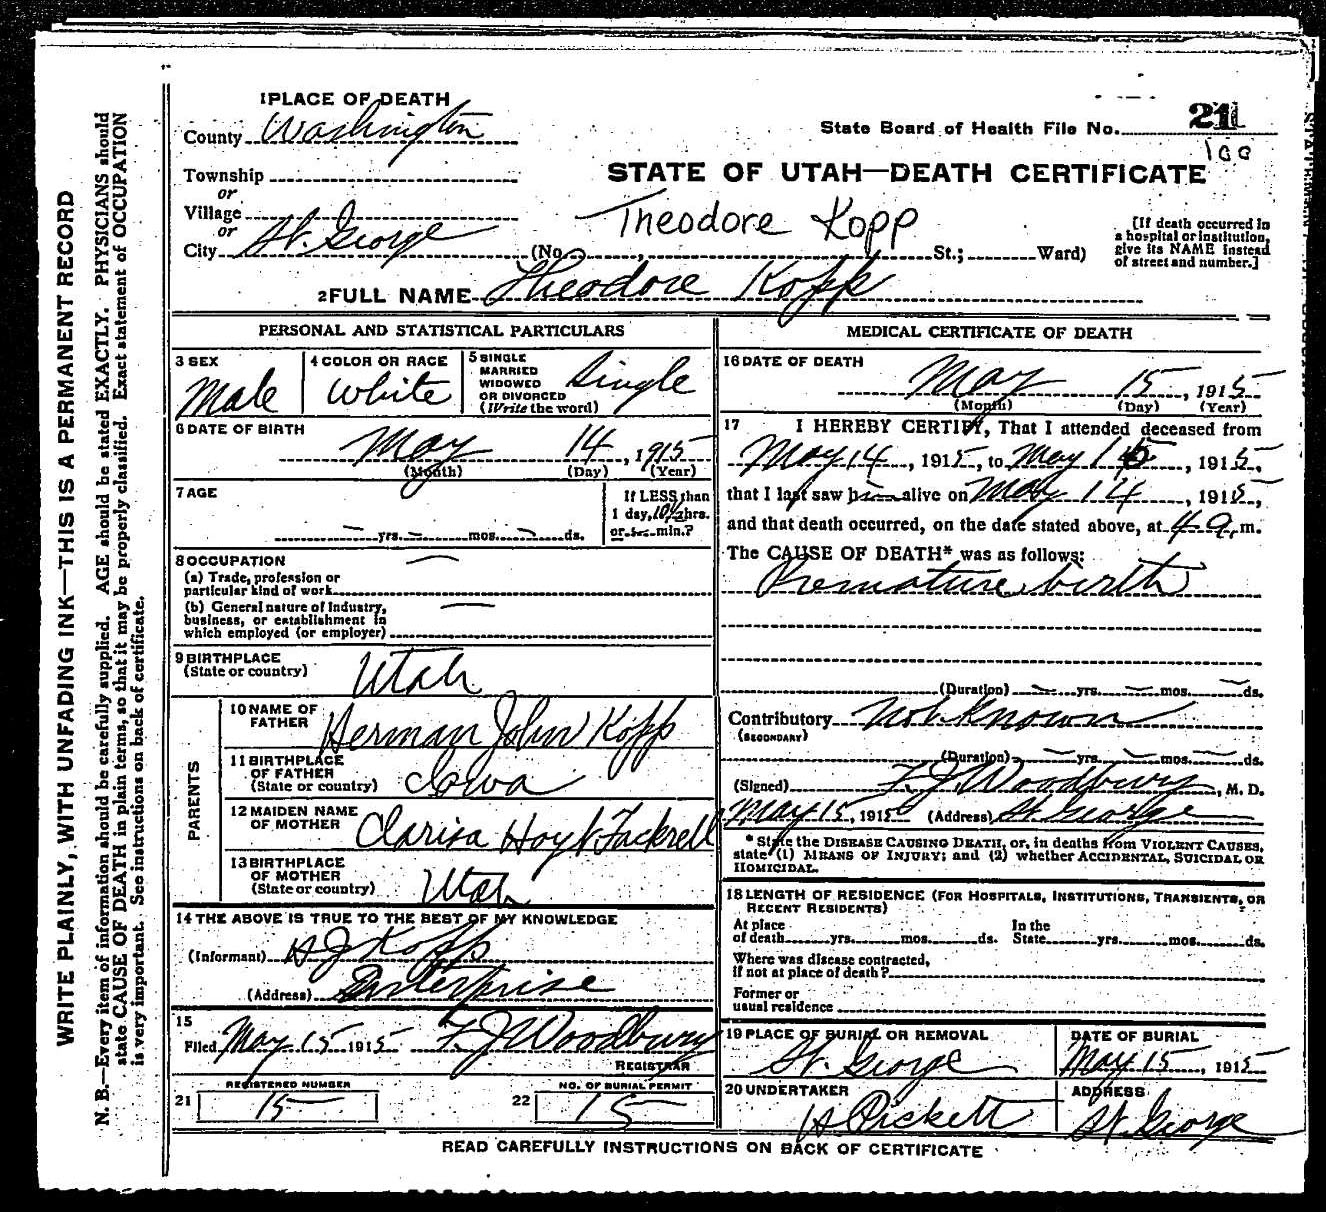 1 PLACE OF DEATH
County Washington
State Board of Health File No. 21
100
Township
or
Village
or
City St. George
STATE OF UTAH—DEATH CERTIFICATE
Theodore Kopp
(No. , St.; Ward)
[If death occurred in
a hospital or institution,
give its NAME instead
of street and number.]
2 FULL NAME Theodore Kopp
PERSONAL AND STATISTICAL PARTICULARS
3 SEX
Male
4 COLOR OR RACE
White
5 SINGLE
MARRIED
WIDOWED
OR DIVORCED
(Write the word)
Single
6 DATE OF BIRTH
May 14, 1915
(Month) (Day) (Year)
7 AGE
— yrs. — mos. — ds.
If LESS than
1 day, 10½ hrs.
or — min.?
8 OCCUPATION
(a) Trade, profession or
particular kind of work —
(b) General nature of industry,
business, or establishment in
which employed (or employer) —
9 BIRTHPLACE
(State or country)
Utah
PARENTS
10 NAME OF
FATHER
Herman John Kopp
11 BIRTHPLACE
OF FATHER
(State or country)
Iowa
12 MAIDEN NAME
OF MOTHER
Clarisa Hoyt Fackrell
13 BIRTHPLACE
OF MOTHER
(State or country)
Utah
14 THE ABOVE IS TRUE TO THE BEST OF MY KNOWLEDGE
(Informant) H J Kopp
(Address) Enterprise
15
Filed May 15 1915 F. J. Woodbury
REGISTRAR
REGISTERED NUMBER
21 15
NO. OF BURIAL PERMIT
22 15
MEDICAL CERTIFICATE OF DEATH
16 DATE OF DEATH
May 15, 1915
(Month) (Day) (Year)
17 I HEREBY CERTIFY, That I attended deceased from
May 14, 1915, to May 15, 1915,
that I last saw him alive on May 14, 1915,
and that death occurred, on the date stated above, at 4 a. m.
The CAUSE OF DEATH* was as follows:
Premature birth
(Duration) — yrs. — mos. — ds.
Contributory Not Known
(SECONDARY)
(Duration) — yrs. — mos. — ds.
(Signed) F. J. Woodbury, M. D.
May 15, 1915 (Address) St. George
* State the DISEASE CAUSING DEATH, or, in deaths from VIOLENT CAUSES,
state (1) MEANS OF INJURY; and (2) whether ACCIDENTAL, SUICIDAL OR
HOMICIDAL.
18 LENGTH OF RESIDENCE (FOR HOSPITALS, INSTITUTIONS, TRANSIENTS, OR
RECENT RESIDENTS)
At place
of death yrs. mos. ds.
In the
State yrs. mos. ds.
Where was disease contracted,
if not at place of death?
Former or
usual residence
19 PLACE OF BURIAL OR REMOVAL
St. George
DATE OF BURIAL
May 15, 1915
20 UNDERTAKER
H Pickett
ADDRESS
St. George
READ CAREFULLY INSTRUCTIONS ON BACK OF CERTIFICATE
WRITE PLAINLY, WITH UNFADING INK—THIS IS A PERMANENT RECORD
N. B.—Every item of information should be carefully supplied. AGE should be stated EXACTLY. PHYSICIANS should
state CAUSE OF DEATH in plain terms, so that it may be properly classified. Exact statement of OCCUPATION
is very important. See instructions on back of certificate.